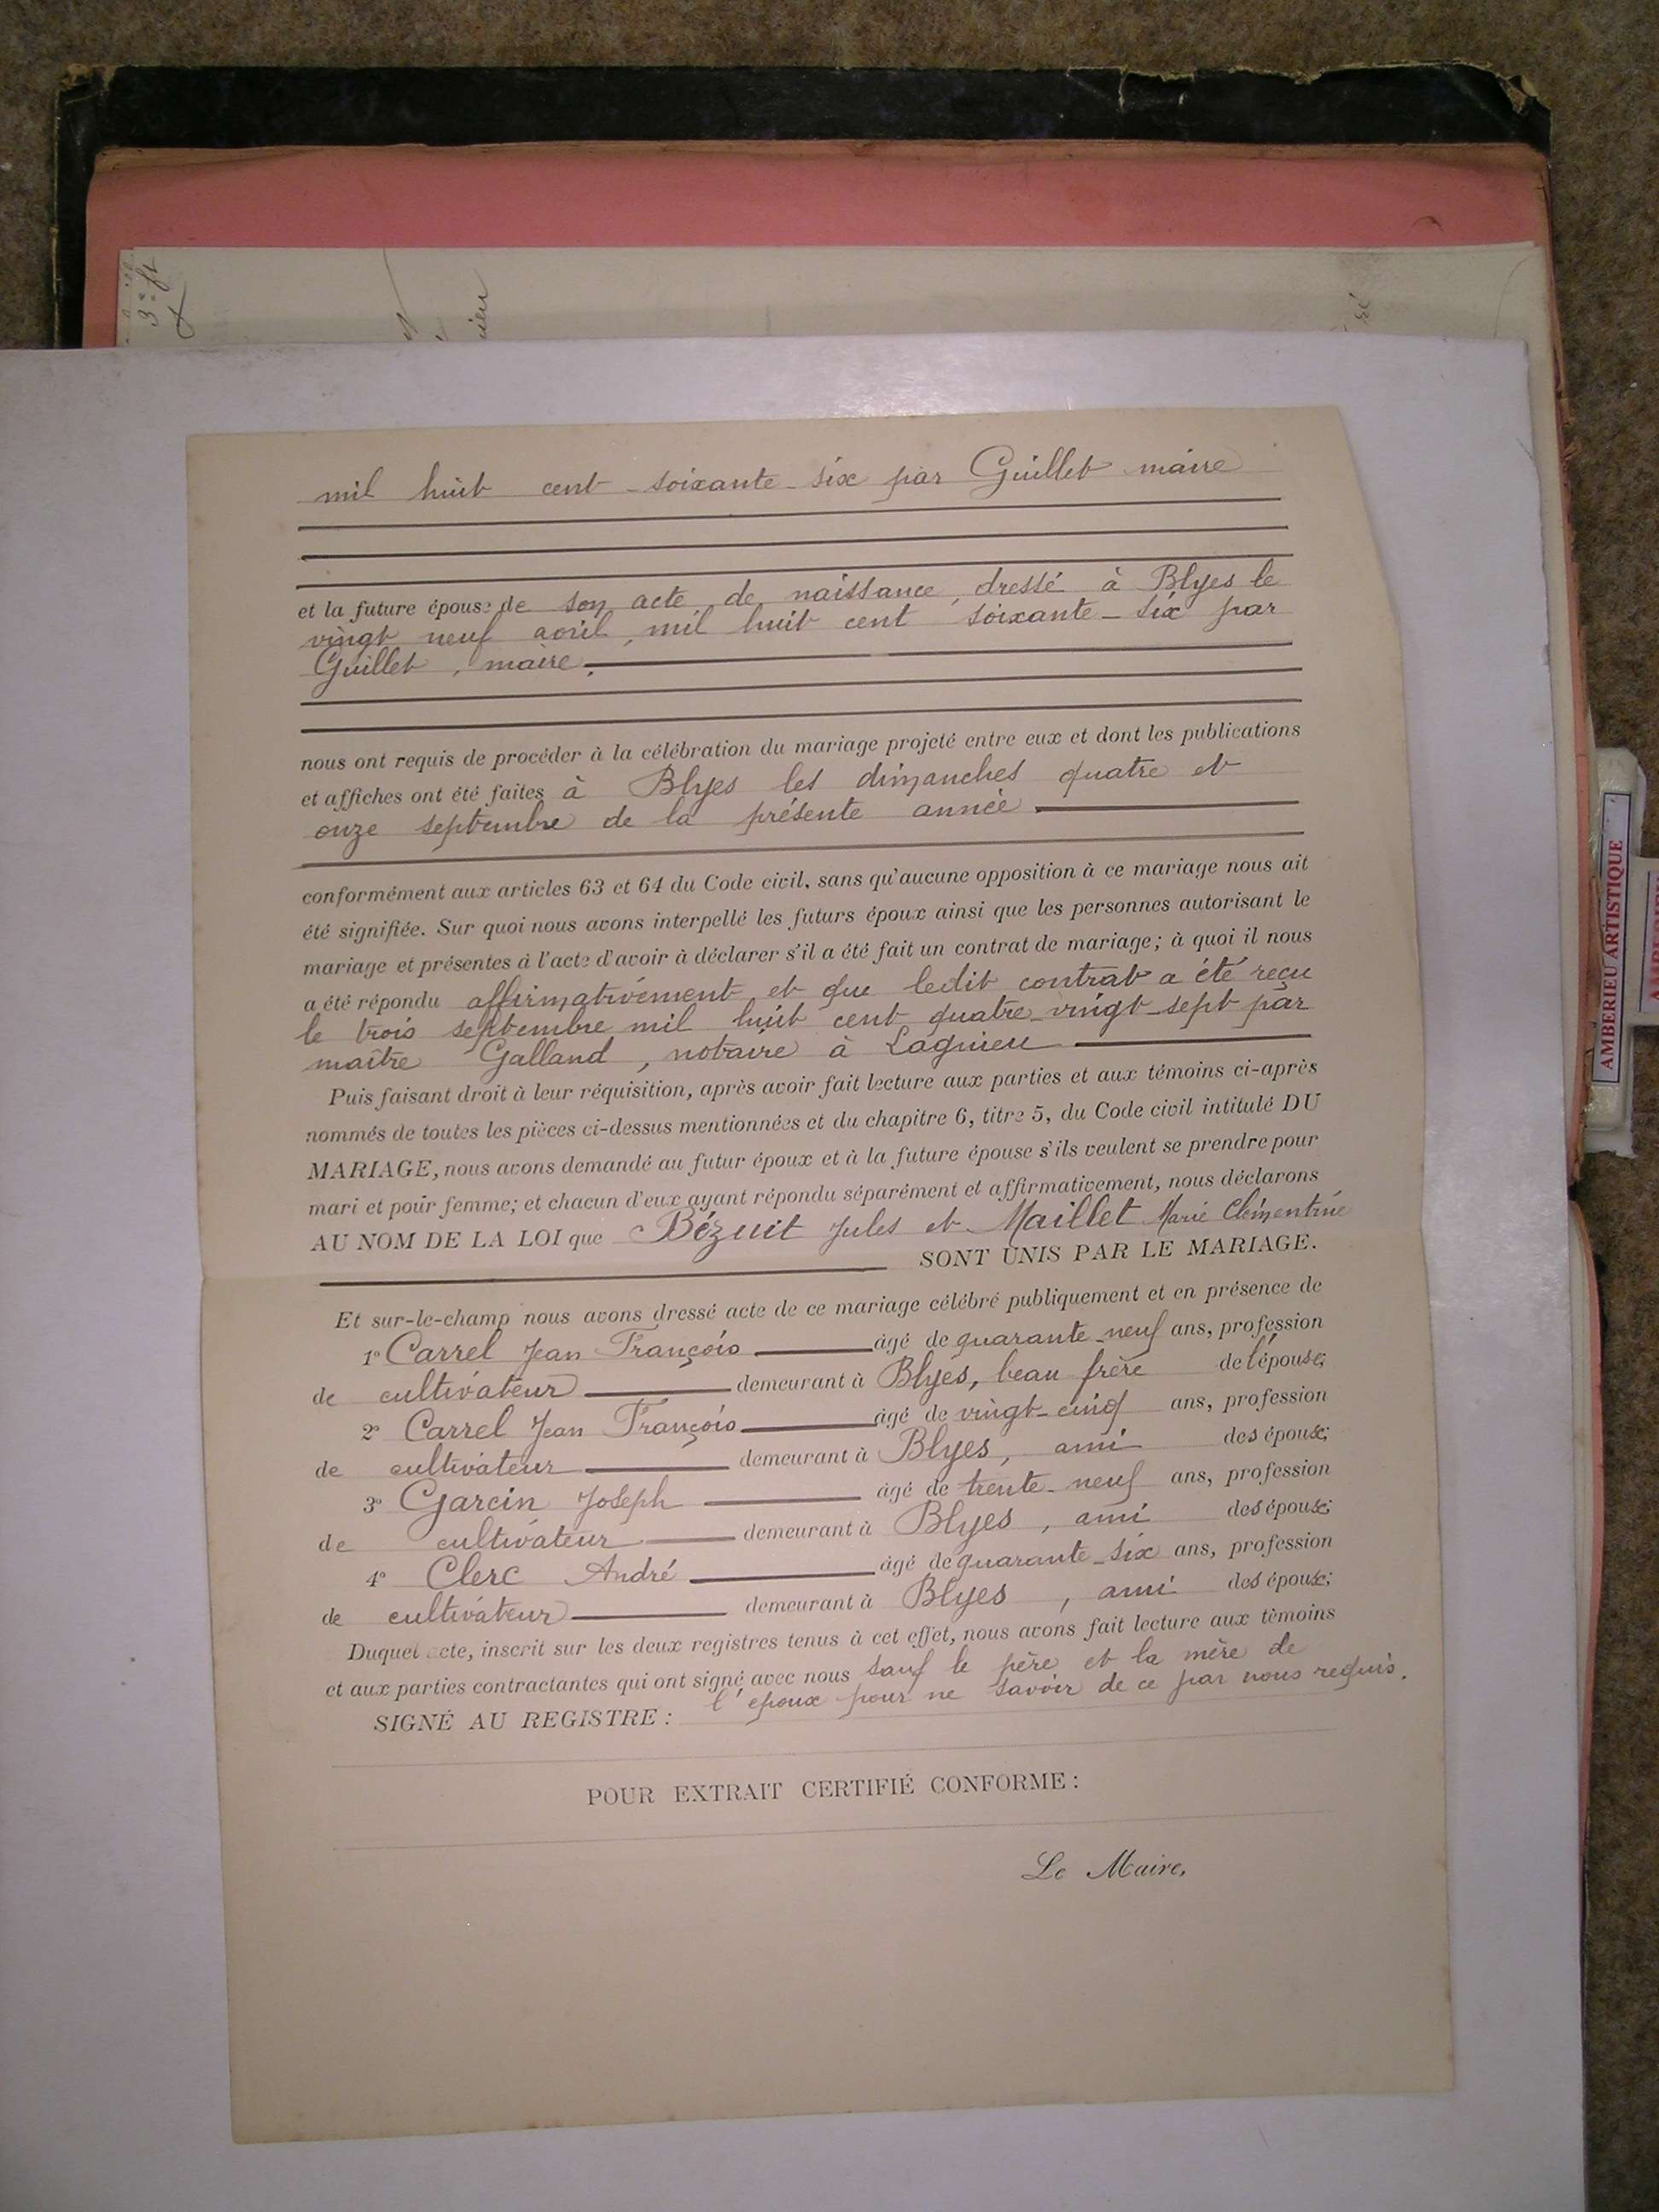 3=ft
ier
mil huit cent soixante-six par Guillet maire
et la future épouse de son acte de naissance, dressé à Blyes le
vingt neuf avril, mil huit cent soixante-six par
Guillet, maire.
nous ont requis de procéder à la célébration du mariage projeté entre eux et dont les publications
et affiches ont été faites à Blyes les dimanches quatre et
onze septembre de la présente année
conformément aux articles 63 et 64 du Code civil, sans qu'aucune opposition à ce mariage nous ait
été signifiée. Sur quoi nous avons interpellé les futurs époux ainsi que les personnes autorisant le
mariage et présentes à l'acte d'avoir à déclarer s'il a été fait un contrat de mariage; à quoi il nous
a été répondu affirmativement et que ledit contrat a été reçu
le trois septembre mil huit cent quatre-vingt-sept par
maître Galland, notaire à Lagnieu
Puis faisant droit à leur réquisition, après avoir fait lecture aux parties et aux témoins ci-après
nommés de toutes les pièces ci-dessus mentionnées et du chapitre 6, titre 5, du Code civil intitulé DU
MARIAGE, nous avons demandé au futur époux et à la future épouse s'ils veulent se prendre pour
mari et pour femme; et chacun d'eux ayant répondu séparément et affirmativement, nous déclarons
AU NOM DE LA LOI que Bézuit Jules et Maillet Marie Clémentine
SONT UNIS PAR LE MARIAGE.
Et sur-le-champ nous avons dressé acte de ce mariage célébré publiquement et en présence de
1° Carrel Jean François âgé de quarante-neuf ans, profession
de cultivateur demeurant à Blyes, beau frère de l'épouse;
2° Carrel Jean François âgé de vingt-cinq ans, profession
de cultivateur demeurant à Blyes, ami des époux;
3° Garcin Joseph âgé de trente-neuf ans, profession
de cultivateur demeurant à Blyes, ami des époux;
4° Clerc André âgé de quarante-six ans, profession
de cultivateur demeurant à Blyes, ami des époux;
Duquel acte, inscrit sur les deux registres tenus à cet effet, nous avons fait lecture aux témoins
et aux parties contractantes qui ont signé avec nous sauf le père et la mère de
l'epoux pour ne savoir de ce par nous requis.
SIGNÉ AU REGISTRE :
POUR EXTRAIT CERTIFIÉ CONFORME :
Le Maire,
AMBERIEU ARTISTIQUE